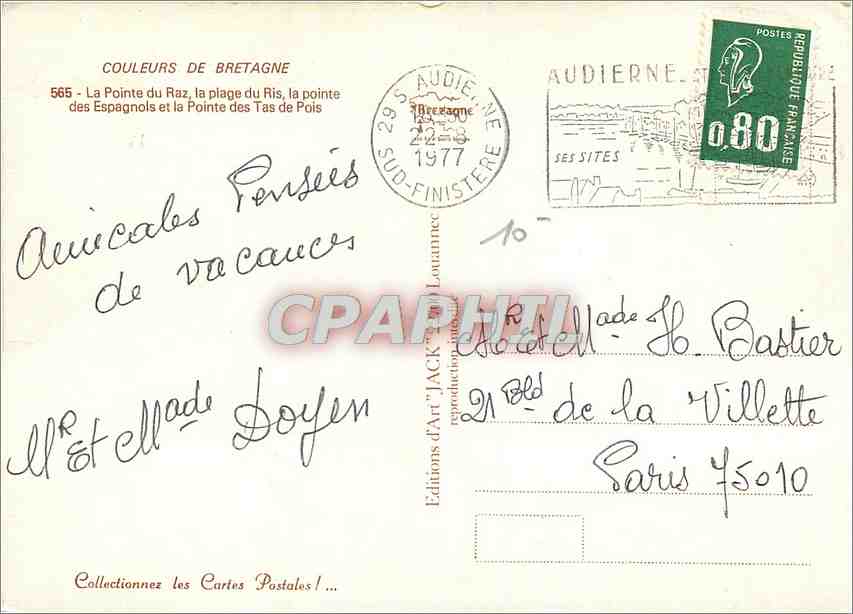 COULEURS DE BRETAGNE
565 - La Pointe du Raz, la plage du Ris, la pointe
des Espagnols et la Pointe des Tas de Pois
Amicales Pensées
de vacances
Mr et Made Doyen
Collectionnez les Cartes Postales ! ...
29 S AUDIERNE
22-8
1977
SUD-FINISTERE
Bretagne
AUDIERNE
SES SITES
POSTES
REPUBLIQUE FRANÇAISE
0,80
10
CPAPHIL
Editions d'Art "JACK" Louannec
reproduction interdite
Mr et Made H. Bastier
21 Bld de la Villette
Paris 75010